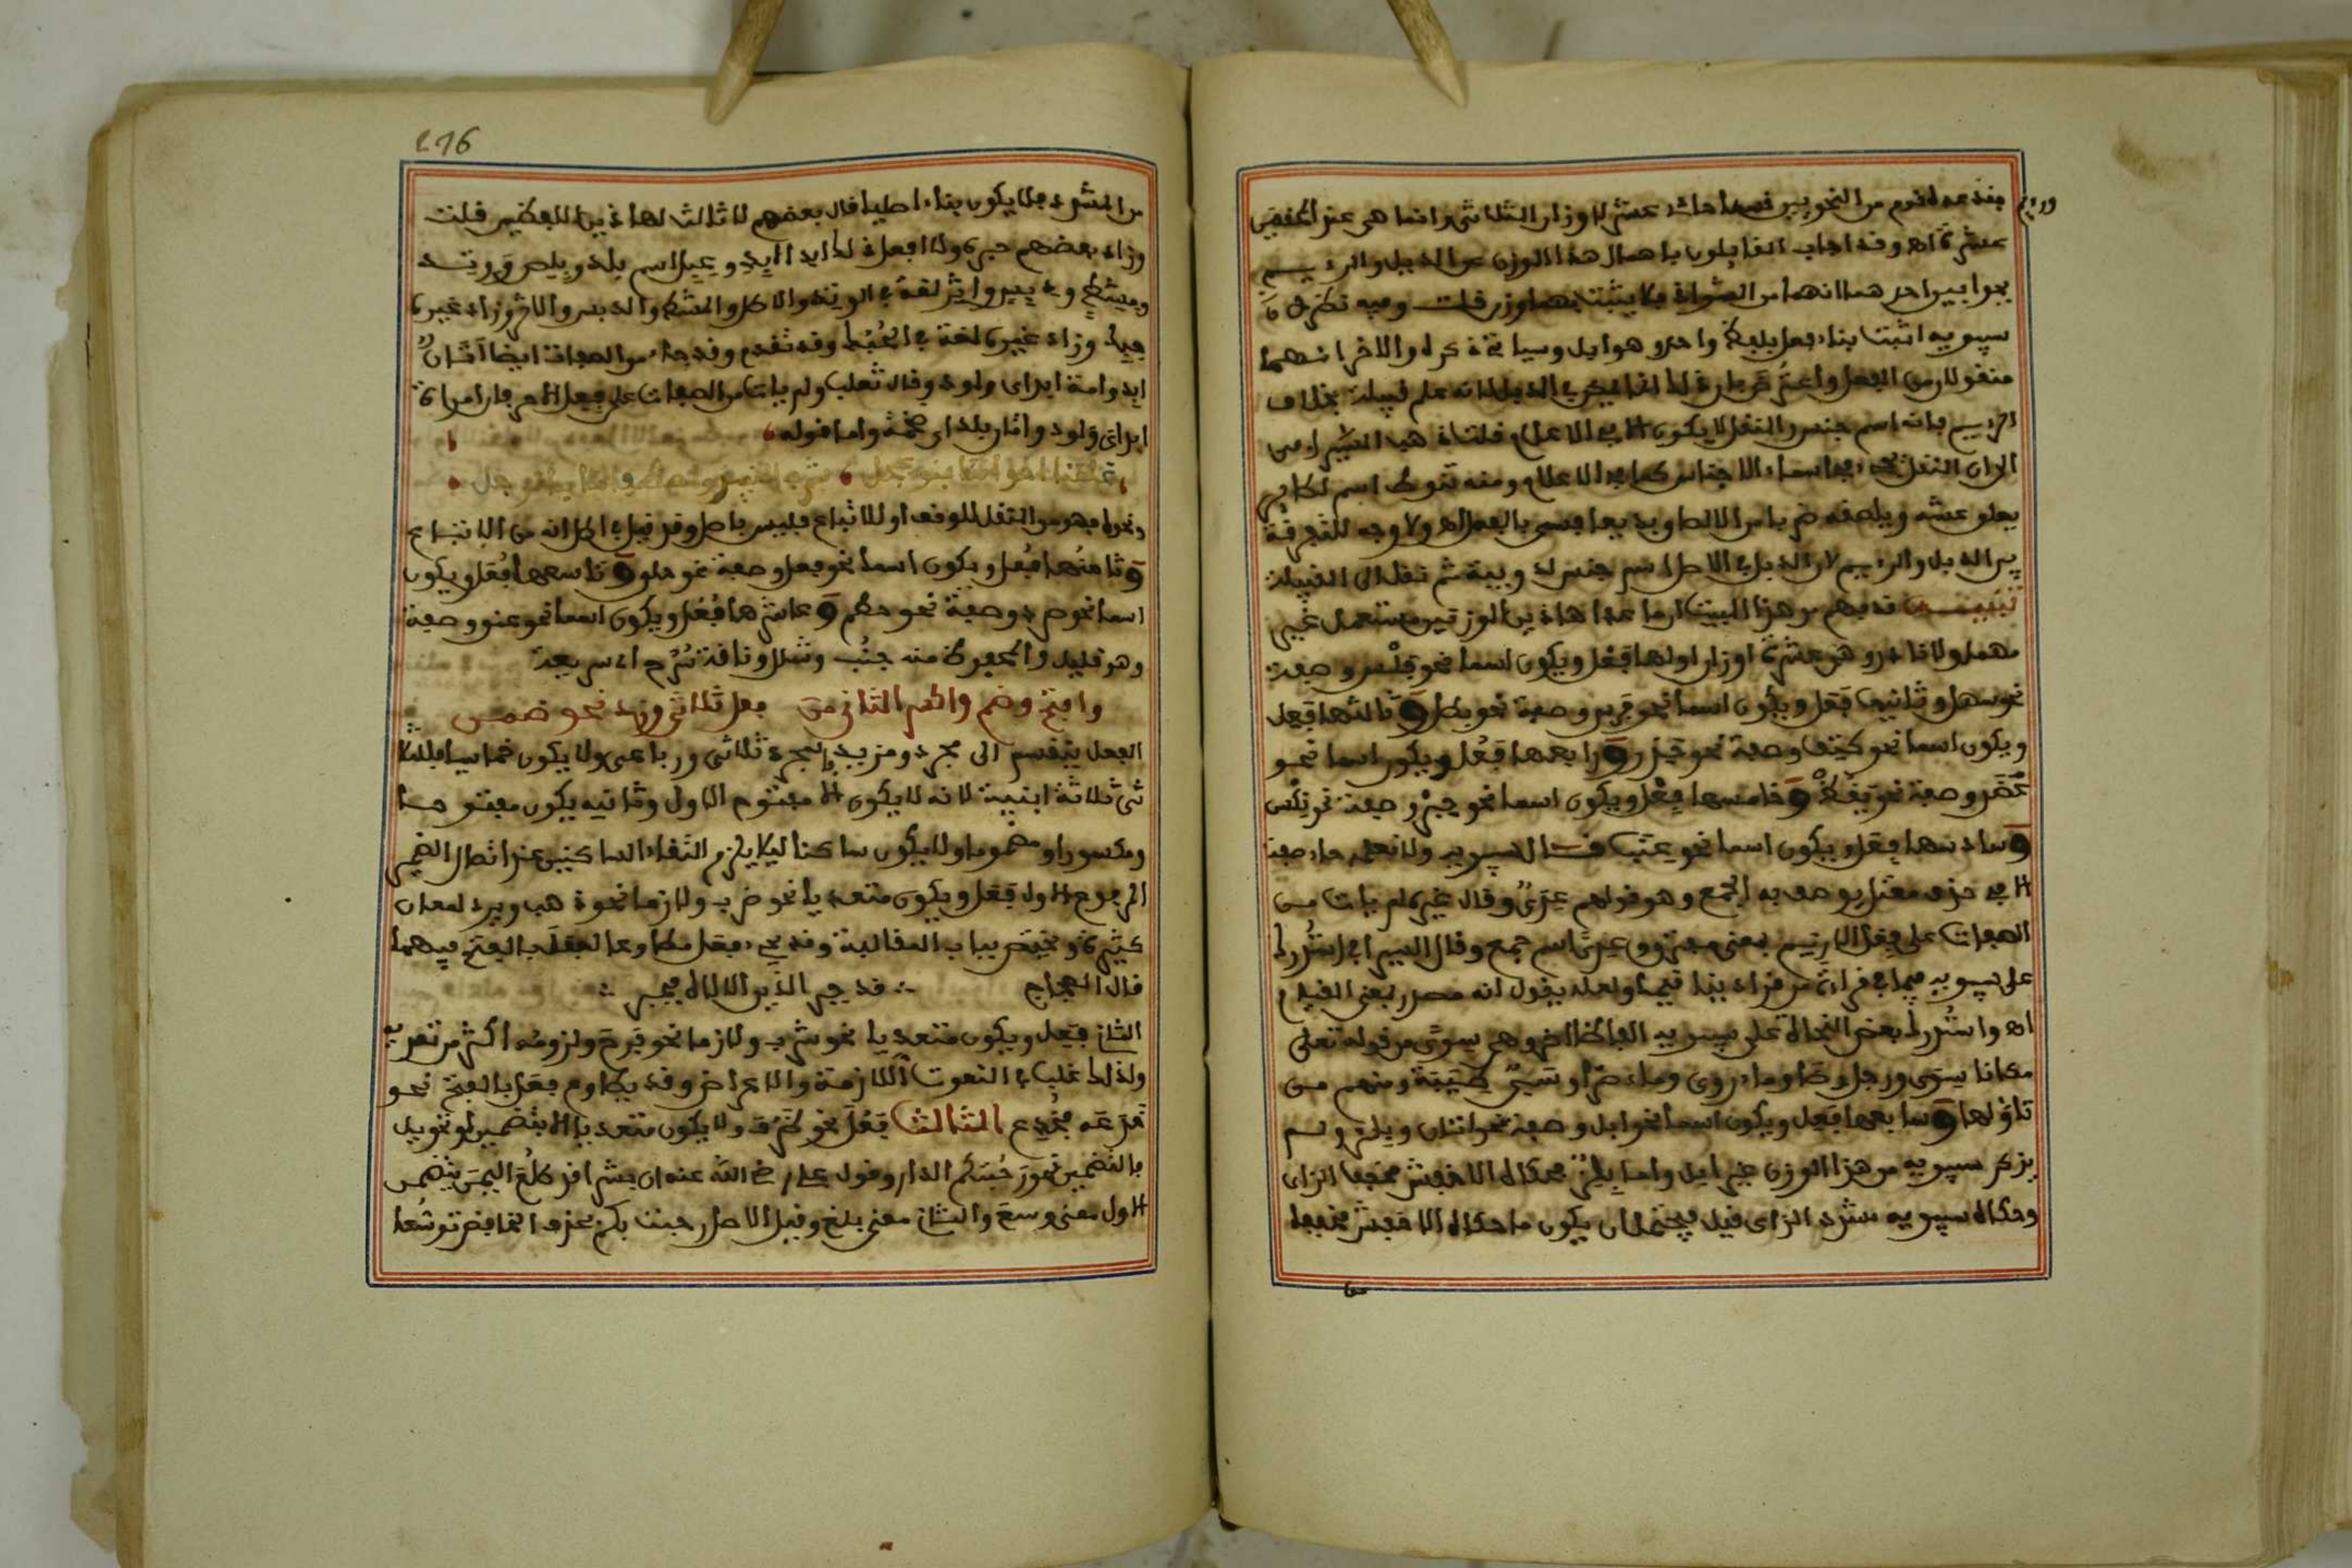 فقد عد قوم من النحويين احد عشر لاوزان الثلاثي وانما هي عند المحققين
عشرة اه وقد اجاب القايلون باهمال هذا الوزن عن الدئل والرئيم
بجوابين احدهما انهما من الشواذ فلا يثبت بهما وزن قلت وفيه نظر لان
سيبويه اثبت بناء فعل بلفظ واحد وهو ابل وسياتي ذكره والاخر انهما
منقولان من الفعل
الرئيم بانه اسم جنس والنقل لا يكون الا في الاعلام قلت ذهب السيرافي
الى ان النقل يجيء في اسماء الاجناس كما في الاعلام ومنه تنوط اسم لطاير
يعلو عشه ويلصقه ضربا من الالصاق بديعا فسمي بالفعل اه ولا وجه للتفرقة
بين الدئل والرئيم لان الدئل في الاصل اسم جنس لدويبة ثم نقل الى القبيلة
تنبيه قد فهم من هذا البيت ان ما عدا هاذين الوزنين مستعمل غير
مهمل ولا نادر وهي عشرة اوزان اولها فَعْل ويكون اسما نحو فلس وصفة
نحو سهل وثانيها فَعَل ويكون اسما نحو فرس وصفة نحو بطل وثالثها فَعِل
ويكون اسما نحو كتف وصفة نحو حذر ورابعها فَعُل ويكون اسما نحو
عضد وصفة نحو يقظ وخامسها فِعْل ويكون اسما نحو جذع وصفة نحو نكس
وسادسها فِعَل ويكون اسما نحو عنب قال سيبويه ولا نعلمه جاء صفة
الا في حرف معتل يوصف به الجمع وهو قولهم عدى وقال غيره لم يات من
الصفات على فعل الا زيم بمعنى متفرق وعدى اسم جمع وقال السيرافي استدرك
على سيبويه قيما في قراءة من قرا دينا قيما ولعله يقول انه مصدر بمعنى القيام
اه واستدرك بعض النحاة على سيبويه الفاظا اخر وهي سوى من قوله تعالى
مكانا سوى ورجل رضا وماء روى وماء صرى وسبي طيبة ومنهم من
تاولها وسابعها فِعِل ويكون اسما نحو ابل وصفة نحو اتان وبلز ولم
يذكر سيبويه من هذا الوزن غير ابل واما بلز فحكاه الاخفش مخففا الزاي
وحكاه سيبويه مشدد الزاي قيل فيحتمل ان يكون ما حكاه الاخفش مخففا
276
من المشدد فلا يكون بناء اصليا قال بعضهم لا ثالث لهاذين اللفظين قلت
وزاد بعضهم حبرة ولا افعل ذلك ابد الابد وعيل اسم بلد
ومشط ودبس واثر لغة في الوتد والاطل والمشط والدبس والاثر وزاد غيره
جلخ وزاد غيره لغة في الحبك وقد تقدم وقد جاء من الصفات ايضا اتان
ابد وامة ابد اي ولود وقال ثعلب ولم يات من الصفات على فعل الا حرفان امراة
ابد اي ولود واتان بلد اي ضخمة واما قوله
علمنا اخوالنا بنو عجل شرب النبيذ واصطفافا بالرجل
ونحوه فهو من النقل للوقف او للاتباع فليس باصل وقد قيل في اطل انه من الاتباع
وثامنها فُعْل ويكون اسما نحو قفل وصفة نحو حلو وتاسعها فُعَل ويكون
اسما نحو صرد وصفة نحو حطم وعاشرها فُعُل ويكون اسما نحو عنق وصفة
وهو قليل والمحفوظ منه جنب وشلل وناقة سرح اي سريعة
وافتح وضم واكسر الثاني من فعل ثلاثي وزد نحو ضمن
الفعل ينقسم الى مجرد ومزيد فالمجرد ثلاثي ورباعي ولا يكون خماسيا فللثلا
ثي ثلاثة ابنية لانه لا يكون الا مفتوح الاول وثانيه يكون مفتوحا
ومكسورا ومضموما ولا يكون ساكنا ليلا يلزم التقاء الساكنين عند اتصال الضمير
المرفوع الاول فَعَل ويكون متعديا نحو ضرب ولازما نحو ذهب ويرد لمعان
كثيرة ويختص بباب المغالبة وقد يجيء فعل مطاوعا لفعل بالفتح فيهما
قال العجاج قد جبر الدين الاله فجبر
الثاني فَعِل ويكون متعديا نحو شرب ولازما نحو فرح ولزومه اكثر من تعديه
ولذلك غلب في النعوت اللازمة والاعراض وقد يطاوع فعل بالفتح نحو
جدعه فجدع الثالث فَعُل نحو ظرف ولا يكون متعديا الا بتضمين او تحويل
فالتضمين نحو رحبتكم الدار وقول علي رضي الله عنه ان بشرا قد طلع اليمن بتضمن
الاول معنى وسع والثاني معنى بلغ وقيل الاصل رحبت بكم فحذف الخافض توسعا